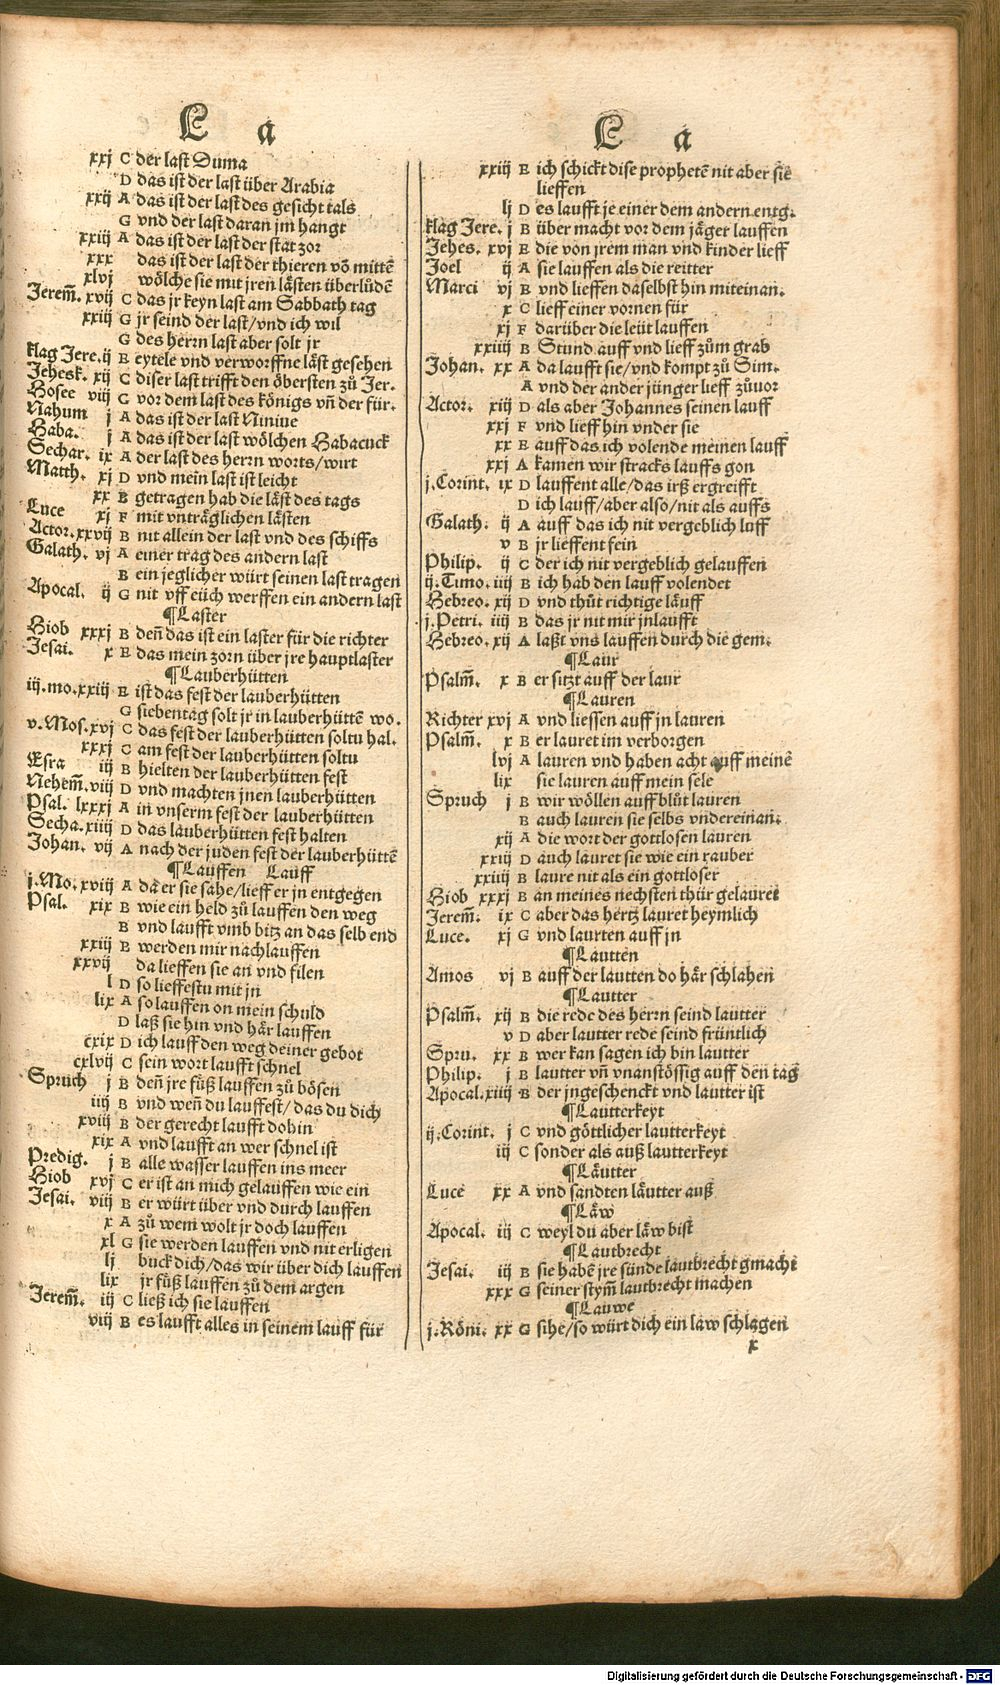 L a
xxj C der last Duma
D das ist der last über Arabia
xxij A das ist der last des gesicht tals
G vnd der last daran jm hangt
xxiij A das ist der last der stat zor
xxx das ist der last der thieren vō mittē
xlvj wölche sie mit jren lästen überlüdē
Jerem̄. xvij C das jr keyn last am Sabbath tag
xxiij G jr seind der last/vnd ich wil
G des herrn last aber solt jr
klag Jere. ij E eytele vnd verworffne läst gesehen
Jehesk. xij C diser last trifft den öbersten zů Jer.
Hosee viij G vor dem last des königs vn̄ der für.
Nahum j A das ist der last Niniue
Haba. j A das ist der last wölchen Habacuck
Sechar. ix A der last des herrn worts/wirt
Matth. xj D vnd mein last ist leicht
xx B getragen hab die läst des tags
Luce xj F mit vnträglichen lästen
Actor. xxvij B nit allein der last vnd des schiffs
Galath. vj A einer trag des andern last
B ein jeglicher würt seinen last tragen
Apocal. ij G nit vff eüch werffen ein andern last
¶Laster
Hiob xxxj B den̄ das ist ein laster für die richter
Jesai. x B das mein zorn über jre hauptlaster
¶Lauberhütten
iij.mo. xxiij E ist das fest der lauberhütten
G siebentag solt jr in lauberhüttē wo.
v.Mos. xvj C das fest der lauberhütten soltu hal.
xxxj C am fest der lauberhütten soltu
Esra iij B hielten der lauberhütten fest
Nehem̄. viij D vnd machten jnen lauberhütten
Psal. lxxxj A in vnserm fest der lauberhütten
Secha. xiiij D das lauberhütten fest halten
Johan. vij A nach der juden fest der lauberhüttē
¶Lauffen Lauff
j.Mo. xviij A da er sie sahe/lieff er jn entgegen
Psal. xix B wie ein held zů lauffen den weg
B vnd laufft vmb bitz an das selb end
xxiij B werden mir nachlauffen
xxvij da lieffen sie an vnd filen
l D so lieffestu mit jn
lix A so lauffen on mein schuld
D laß sie hin vnd här lauffen
cxix D ich lauff den weg deiner gebot
cxlvij C sein wort laufft schnel
Spruch j B den̄ jre füß lauffen zů bösen
iiij B vnd wen̄ du lauffest/das du dich
xviij B der gerecht laufft dohin
xix A vnd laufft an wer schnel ist
Predig. j B alle wasser lauffen ins meer
Hiob xvj C er ist an mich gelauffen wie ein
Jesai. viij B er würt über vnd durch lauffen
x A zů wem wolt jr doch lauffen
xl G sie werden lauffen vnd nit erligen
lj buck dich/das wir über dich lauffen
lix jr füß lauffen zů dem argen
Jerem̄. iij C ließ ich sie lauffen
viij B es laufft alles in seinem lauff für
L a
xxiij E ich schickt dise prophetē nit aber sie
lieffen
lj D es laufft je einer dem andern entg.
klag Jere. j B über macht vor dem jäger lauffen
Jehes. xvj E die von jrem man vnd kinder lieff
Joel ij A sie lauffen als die reitter
Marci vj B vnd lieffen daselbst hin miteinan.
x C lieff einer vornen für
xj F darüber die leüt lauffen
xxiiij B Stund auff vnd lieff zům grab
Johan. xx A da laufft sie/vnd kompt zů Sim.
A vnd der ander jünger lieff zůuor
Actor. xiij D als aber Johannes seinen lauff
xxj F vnd lieff hin vnder sie
xx E auff das ich volende meinen lauff
xxj A kamen wir stracks lauffs gon
j.Corint. ix D lauffent alle/das irß ergreifft
D ich lauff/aber also/nit als auffs
Galath. ij A auff das ich nit vergeblich luff
v B jr lieffent fein
Philip. ij C der ich nit vergeblich gelauffen
ij.Timo. iiij B ich hab den lauff volendet
Hebreo. xij D vnd thůt richtige läuff
j.Petri. iiij B das jr nit mir jnlaufft
Hebreo. xij A laßt vns lauffen durch die gem.
¶Laur
Psalm̄. x B er sitzt auff der laur
¶Lauren
Richter xvj A vnd liessen auff jn lauren
Psalm̄. x B er lauret im verborgen
lvj A lauren vnd haben acht auff meinē
lix sie lauren auff mein sele
Spruch j B wir wöllen auff blůt lauren
B auch lauren sie selbs vndereinan.
xij A die wort der gottlosen lauren
xxiij D auch lauret sie wie ein rauber
xxiiij B laure nit als ein gottloser
Hiob xxxj B an meines nechsten thür gelauret
Jerem̄. ix C aber das hertz lauret heymlich
Luce. xj G vnd laurten auff jn
¶Lautten
Amos vj B auff der lautten do här schlahen
¶Lautter
Psalm̄. xij B die rede des herrn seind lautter
v D aber lautter rede seind früntlich
Spru. xx B wer kan sagen ich bin lautter
Philip. j B lautter vn̄ vnanstössig auff den tag
Apocal. xiiij B der jngeschenckt vnd lautter ist
¶Lautterkeyt
ij.Corint. j C vnd göttlicher lautterkeyt
iij C sonder als auß lautterkeyt
¶Läutter
Luce xx A vnd sandten läutter auß
¶Läw
Apocal. iij C weyl du aber läw bist
¶Lautbrecht
Jesai. iij B sie habē jre sünde lautbrecht gmacht
xxx G seiner stym̄ lautbrecht machen
¶Lauwe
j.Röni. xx G sihe/so würt dich ein läw schlagen
x
Digitalisierung gefördert durch die Deutsche Forschungsgemeinschaft - DFG